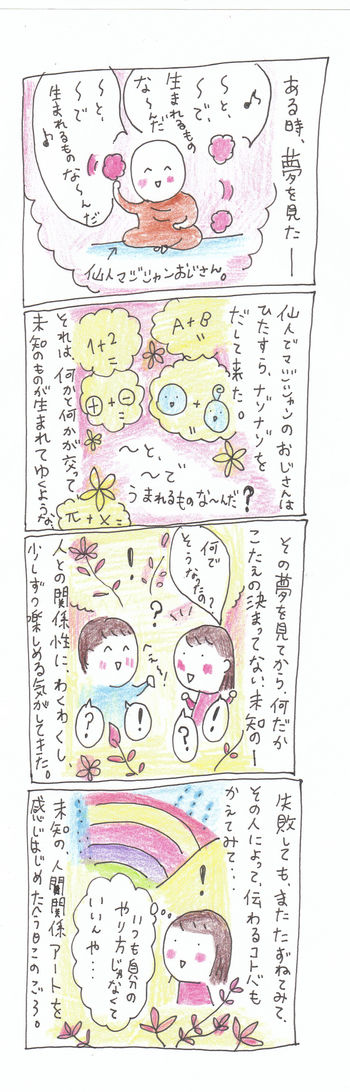 ある時、夢を見たー
♪〜と、
〜で、
生まれるもの
な〜んだ
〜と、
〜で
生まれるもの
な〜んだ
♪
仙人マジシャンおじさん。
仙人でマジシャンのおじさんは
ひたすら、ナゾナゾを
だして来た。
A+B
=
1+2
=
+
=
⊕+⊖
=
π+x=
〜と、
〜で
うまれるものな〜んだ?
それは、何かと何かが交って
未知のものが生まれてゆくような、
その夢を見てから、何だか
こたえの決まってない未知のー
何で
そうなったの?
!
?
へぇ〜!!
?
!
?
!
人との関係性に、わくわくし、
少しずつ楽しめる気がしてきた。
失敗しても、またたずねてみて、
その人によって、伝わるコトバも
かえてみて・・・
!
いつも自分の
やり方じゃなくて
いいんや・・・
未知の、人間関係アートを
感じはじめた今日このごろ。